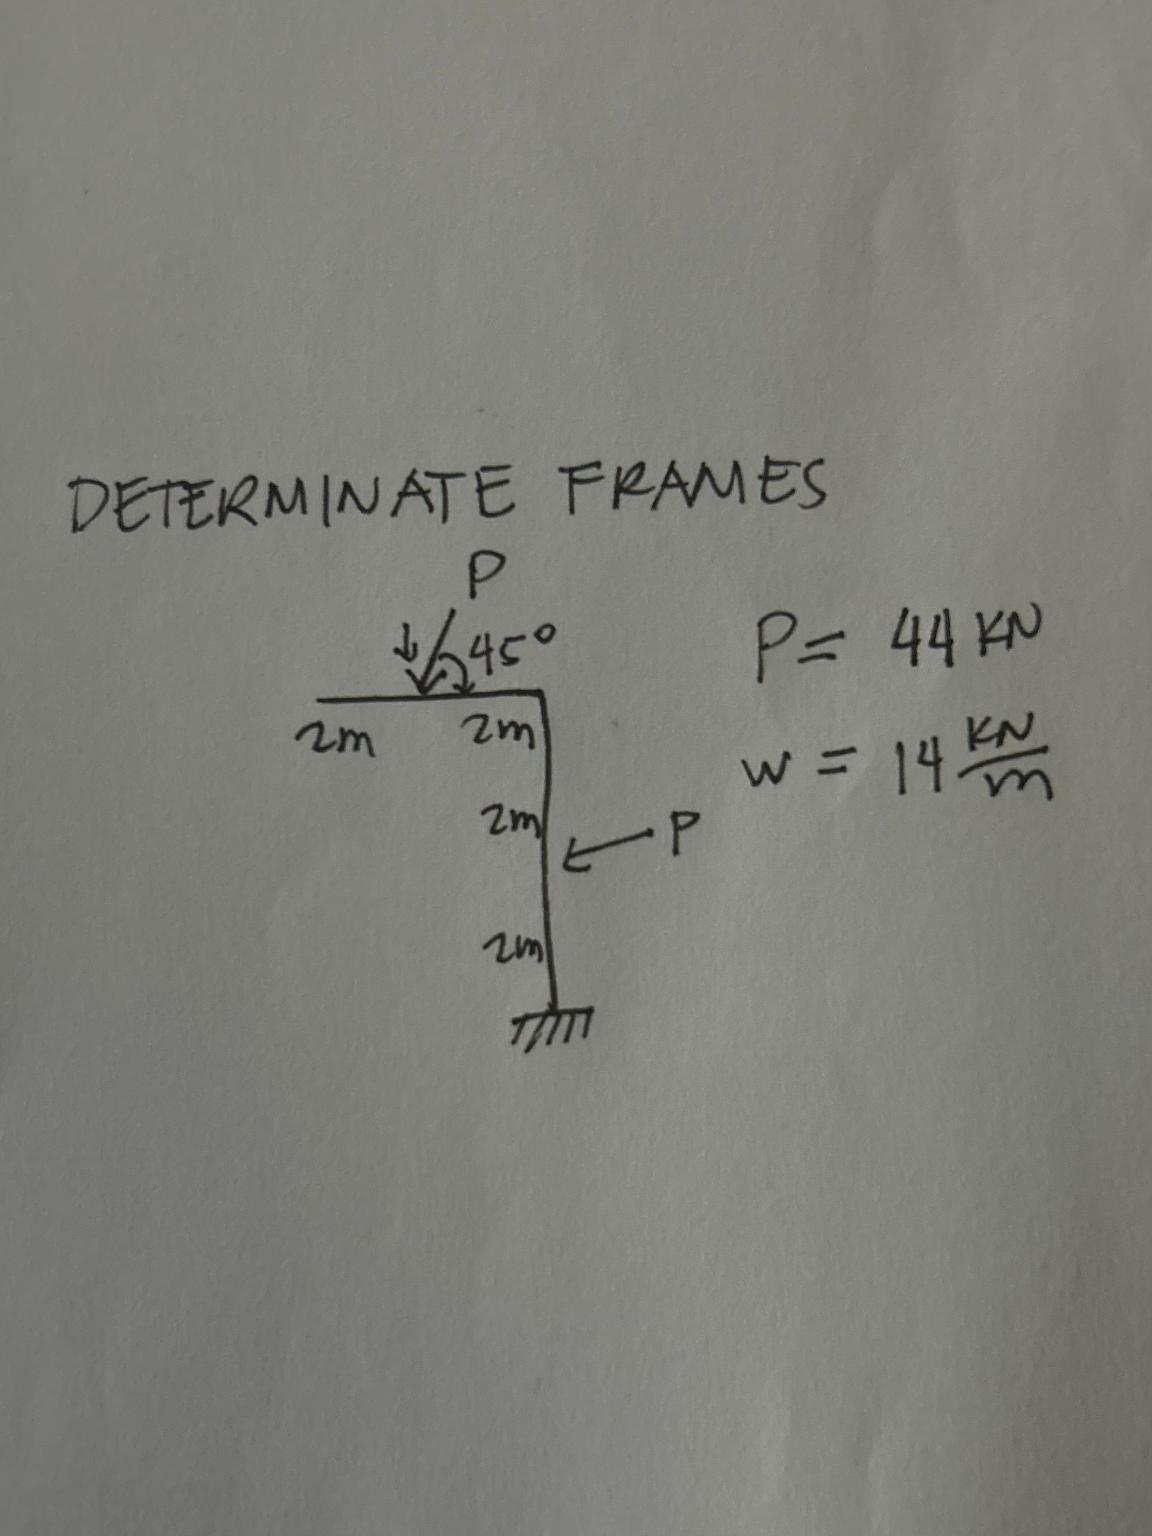 DETERMINATE FRAMES
P
45°
P = 44 KN
2m
2m
w = 14 KN/m
2m
P
2m